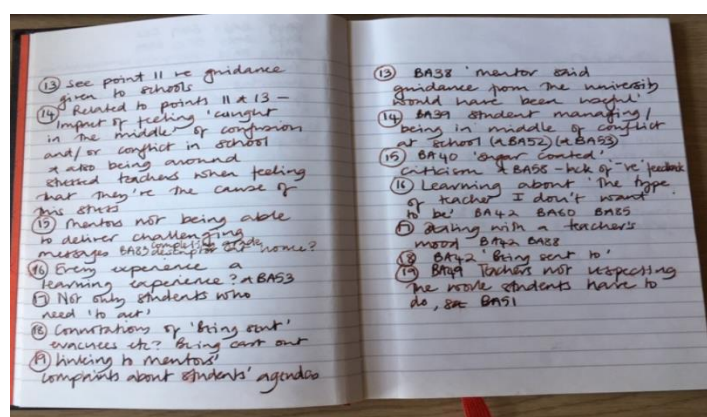 (13) See point 11 re guidance
given to schools
(14) Related to points 11 & 13 –
Impact of feeling 'caught
in the middle' of confusion
and/or conflict in school
& also being around
stressed teachers when feeling
that they're the cause of
this stress
(15) Mentors not being able
to deliver challenging
messages BA83 completing grade
descriptor at home?
(16) Every experience a
learning experience? & BA53
(17) Not only students who
need 'to act'
(18) Connotations of 'Being sent'
evacuees etc? Being cast out
(19) Linking to mentors'
complaints about students' agendas
(13) BA38 'mentor said
guidance from the university
would have been useful'
(14) BA39 student managing/
being in middle of conflict
at school (& BA52) (& BA53)
(15) BA40 'sugar coated'
criticism & BA58 – lack of '-ve' feedback
(16) Learning about 'the type
of teacher I don't want
to be' BA42 BA60 BA85
(17) Dealing with a teacher's
mood BA42 BA88
(18) BA42 'Being sent to'
(19) BA49 Teachers not respecting
the work students have to
do, BA51